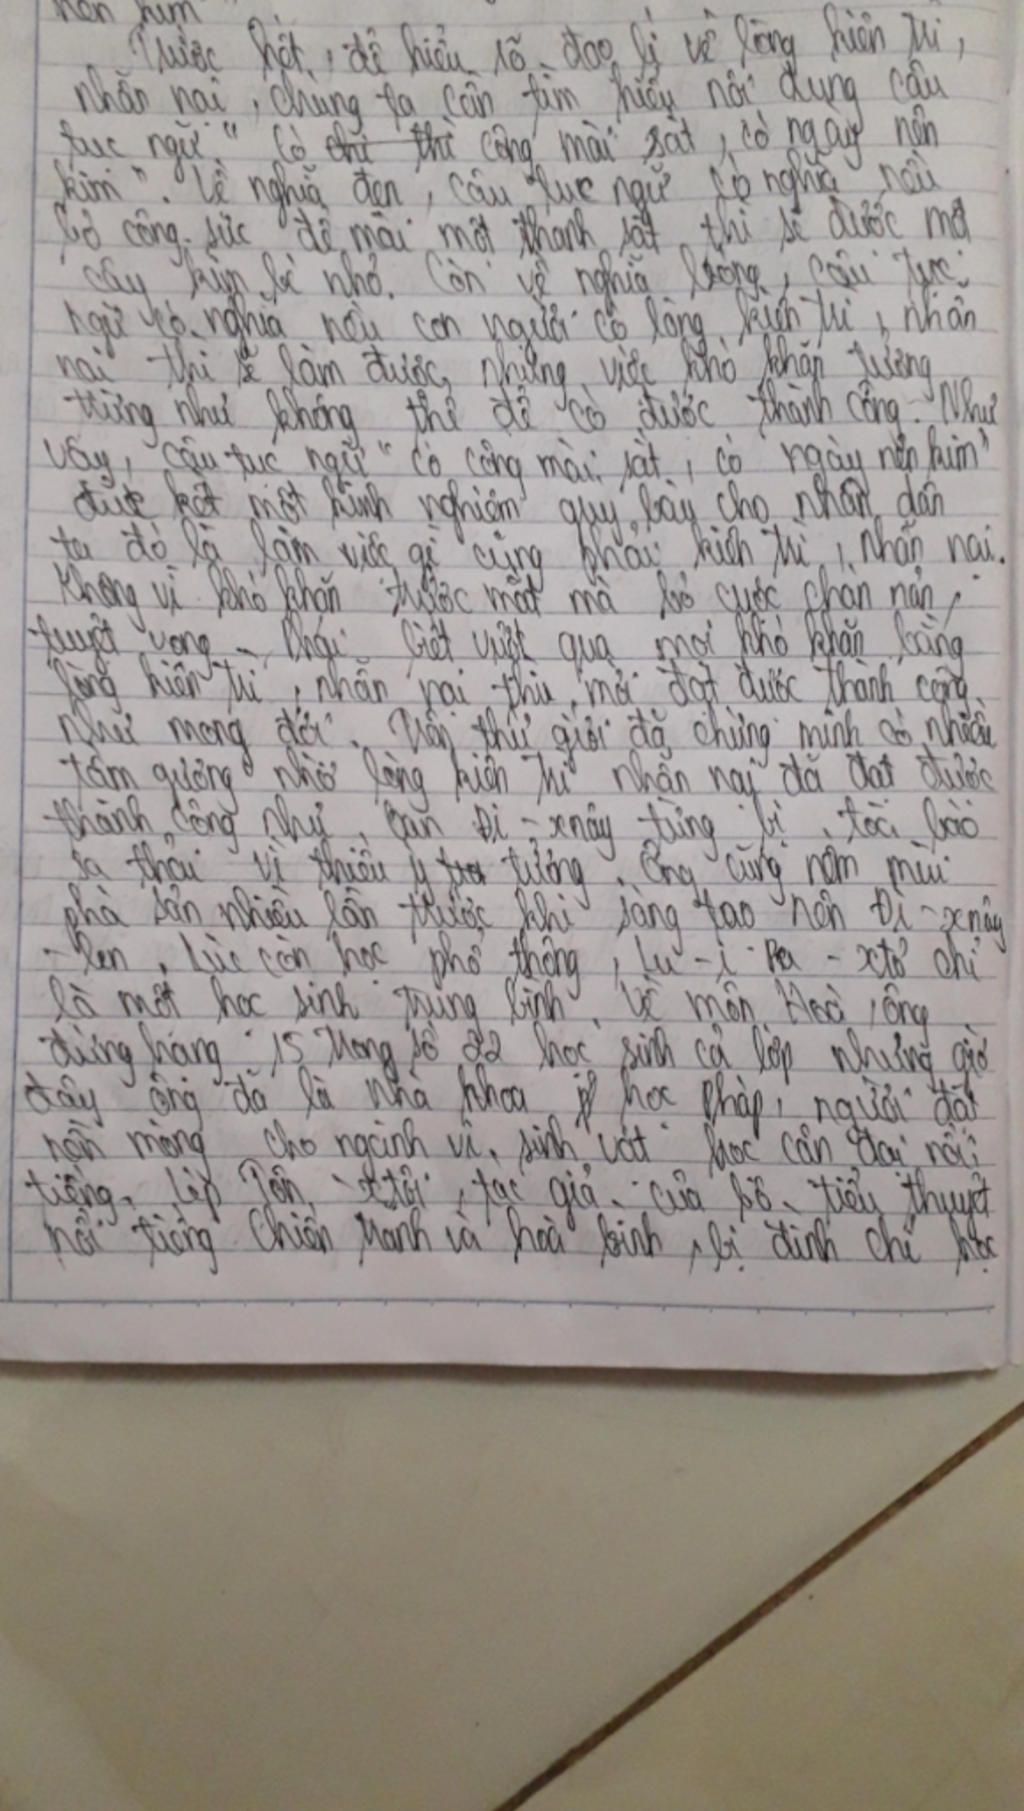 nên kim"
Trước hết, để hiểu rõ đạo lí về lòng kiên trì,
nhẫn nại, chúng ta cần tìm hiểu nội dung câu
tục ngữ " Có công mài sắt, có ngày nên
kim". Về nghĩa đen, câu tục ngữ có nghĩa nếu
bỏ công sức để mài một thanh sắt thì sẽ được một
cây kim bé nhỏ. Còn về nghĩa bóng, câu tục
ngữ có nghĩa nếu con người có lòng kiên trì, nhẫn
nại thì sẽ làm được những việc khó khăn tưởng
chừng như không thể để có được thành công. Như
vậy, câu tục ngữ " có công mài sắt, có ngày nên kim"
đúc kết một kinh nghiệm quý báu cho nhân dân
ta đó là làm việc gì cũng phải kiên trì, nhẫn nại.
Không vì khó khăn trước mắt mà bỏ cuộc chán nản,
tuyệt vọng. Phải biết vượt qua mọi khó khăn bằng
lòng kiên trì, nhẫn nại thì mới đạt được thành công
như mong đợi. Trên thế giới đã chứng minh có nhiều
tấm gương nhờ lòng kiên trì nhẫn nại đã đạt được
thành công như Oan Đi-xnây từng bị tòa báo
sa thải vì thiếu ý tưởng. Ông cũng nếm mùi
phá sản nhiều lần trước khi sáng tạo nên Đi-xnây
-len. Lúc còn học phổ thông, Lu-i Pa-xtơ chỉ
là một học sinh trung bình. Về môn Hoá, ông
đứng hạng 15 trong số 22 học sinh cả lớp nhưng giờ
đây ông đã là nhà khoa học Pháp, người đặt
nền móng cho ngành vi sinh vật học cận đại nổi
tiếng. Lép Tôn-xtôi, tác giả của bộ tiểu thuyết
nổi tiếng Chiến tranh và hoà bình, bị đình chỉ học